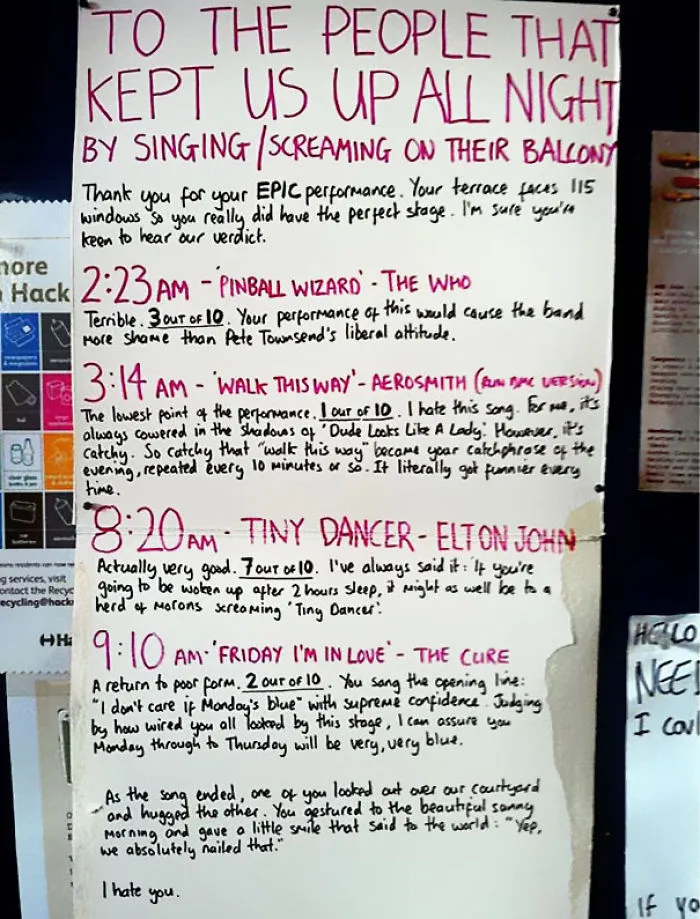 TO THE PEOPLE THAT
KEPT US UP ALL NIGHT
BY SINGING/SCREAMING ON THEIR BALCONY
Thank you for your EPIC performance. Your terrace faces 115
windows so you really did have the perfect stage. I'm sure you're
keen to hear our verdict.
2:23AM - 'PINBALL WIZARD' - THE WHO
Terrible. 3 OUT OF 10. Your performance of this would cause the band
more shame than Pete Townsend's liberal attitude.
3:14 AM - 'WALK THIS WAY' - AEROSMITH (RUN DMC VERSION)
The lowest point of the performance. 1 out of 10. I hate this song. For me, it's
always cowered in the shadows of 'Dude Looks Like A Lady'. However, it's
catchy. So catchy that "walk this way" became your catchphrase of the
evening, repeated every 10 minutes or so. It literally got funnier every
time.
8:20AM - TINY DANCER - ELTON JOHN
Actually very good. 7 out of 10. I've always said it: 'If you're
going to be woken up after 2 hours sleep, it might as well be to a
herd of morons screaming 'Tiny Dancer'.
9:10 AM - 'FRIDAY I'M IN LOVE' - THE CURE
A return to poor form. 2 out of 10. You sang the opening line:
"I don't care if Monday's blue" with supreme confidence. Judging
by how wired you all looked by this stage, I can assure you
Monday through to Thursday will be very, very blue.
As the song ended, one of you looked out over our courtyard
and hugged the other. You gestured to the beautiful sunny
morning and gave a little smile that said to the world: "Yep,
we absolutely nailed that."
I hate you.
more
Hack
g services, visit
ontact the Recyc
ecycling@hack
Ha
HELLO
NEE
I COUL
IF YO